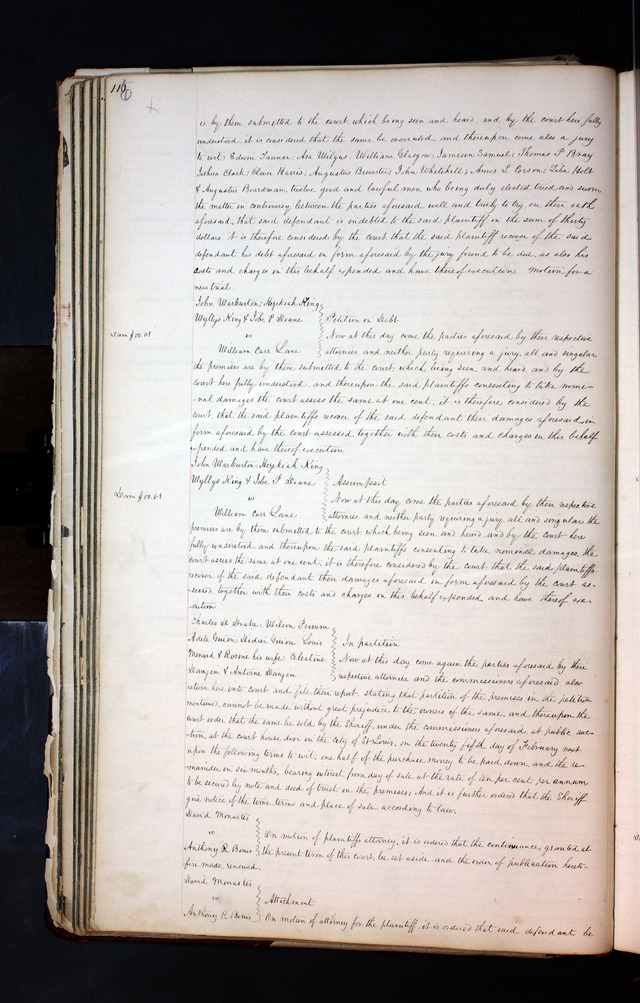 116
is by them submitted to the court which being seen and heard and by the court here fully
understood, it is considered that the same be overruled, and thereupon come also a jury
to wit; Edwin Tanner; Asa Wilgus; William Glasgow; Jameson Samuel; Thomas P Bray
Joshua Clark; Oliver Harris; Augustus Brewster; John Whitehill; Amos L Corson; Zeba Holt
& Augustus Boardman, twelve good and lawful men, who being duly elected tried and sworn
the matter in controversy between the parties aforesaid well and truly to try on their oath
aforesaid, that said defendant is indebted to the said plaintiff in the sum of thirty
dollars. It is therefore considered by the court that the said plaintiff recover of the said
defendant his debt aforesaid in form aforesaid by the jury found to be due, as also his
costs and charges in this behalf expended and have thereof execution. Motion for a
new trial.
John Warburton; Hezekiah King
Wyllys King & Tobe P Doane Petition in Debt
Dam $00.01
vs Now at this day come the parties aforesaid by their respective
William Carr Lane attornies, and neither party requiring a jury, all and singular
the premises are by them submitted to the court, which being seen and heard, and by the
court here fully understood, and thereupon the said plaintiffs consenting to take nomi-
-nal damages the court assess the same at one cent, it is therefore considered by the
court, that the said plaintiffs recover of the said defendant their damages aforesaid in
form aforesaid by the court assessed together with their costs and charges in this behalf
expended and have thereof execution
John Warburton; Hezekiah King
Wyllys King & Tobe P Doane Assumpsit
Dam $00.01
vs Now at this day, come the parties aforesaid by their respective
William Carr Lane attornies and neither party requiring a jury, all and singular the
premises are by them submitted to the court which being seen and heard, and by the court here
fully understood and thereupon the said plaintiffs consenting to take nominal damages, the
court assess the same at one cent, it is therefore considered by the court that the said plaintiffs
recover of the said defendant their damages aforesaid in form aforesaid by the court as-
sessed, together with their costs and charges on this behalf expended, and have thereof exe-
cution.
Charles D Drake; Wilson Primm
Adele Guion; Didier Guion; Louis In partition
Menard & Rosine his wife; Celestine Now at this day come again the parties aforesaid by their
Dangen & Antoine Dangen respective attornies and the commissioners aforesaid also
return here into court and file their report, stating that partition of the premises in the petition
mentioned, cannot be made without great prejudice to the owners of the same, and thereupon the
court order that the same be sold by the Sheriff, under the commissioners aforesaid, at public auc-
tion, at the court house door in the city of St Louis, on the twenty fifth day of February next
upon the following terms to wit; one half of the purchase money to be paid down, and the re-
mainder in six months, bearing interest from day of sale at the rate of ten per cent; per annum
to be secured by note and deed of trust on the premises; And it is further ordered that the Sheriff
give notice of the time, terms and place of sale according to law.
David Monastes
vs On motion of plaintiffs attorney, it is ordered that the continuance, granted at
Anthony R Bouis the present term of this court, be set aside, and the order of publication hereto-
fore made, renewed.
David Monastes
vs Attachment
Anthony R Bouis On motion of attorney for the plaintiff, it is ordered that said defendant be